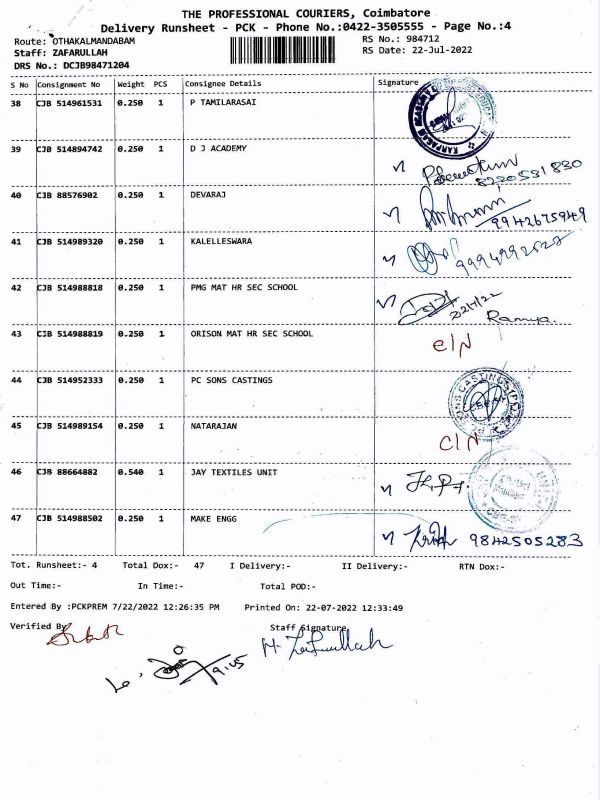 THE PROFESSIONAL COURIERS, Coimbatore
Delivery Runsheet - PCK - Phone No.:0422-3505555 - Page No.:4
Route: OTHAKALMANDABAM
RS No.: 984712
Staff: ZAFARULLAH
RS Date: 22-Jul-2022
DRS No.: DCJB98471204
S No Consignment No Weight PCS Consignee Details Signature
38 CJB 514961531 0.250 1 P TAMILARASAI
39 CJB 514894742 0.250 1 D J ACADEMY
8220531830
40 CJB 88576902 0.250 1 DEVARAJ
9942675949
41 CJB 514989320 0.250 1 KALELLESWARA
42 CJB 514988818 0.250 1 PMG MAT HR SEC SCHOOL
Ramya.
43 CJB 514988819 0.250 1 ORISON MAT HR SEC SCHOOL
C/N
44 CJB 514952333 0.250 1 PC SONS CASTINGS
45 CJB 514989154 0.250 1 NATARAJAN
C/N
46 CJB 88664882 0.540 1 JAY TEXTILES UNIT
47 CJB 514988502 0.250 1 MAKE ENGG
9842505283
Tot. Runsheet:- 4 Total Dox:- 47 I Delivery:- II Delivery:- RTN Dox:-
Out Time:- In Time:- Total POD:-
Entered By :PCKPREM 7/22/2022 12:26:35 PM Printed On: 22-07-2022 12:33:49
Verified By Staff Signature
9.45